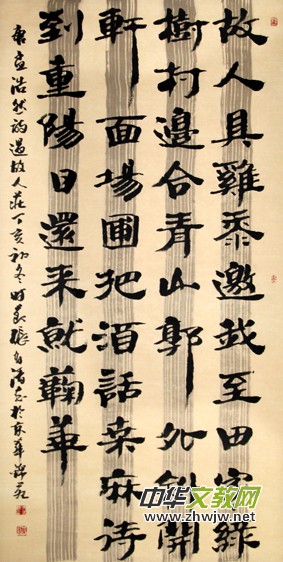 故人具雞黍邀我至田家綠
樹村邊合青山郭外斜開
軒面場圃把酒話桑麻待
到重陽日還来就蘜華
唐孟浩然詩過故人莊丁亥初冬時於京華
中华文教网
www.zhwjw.net